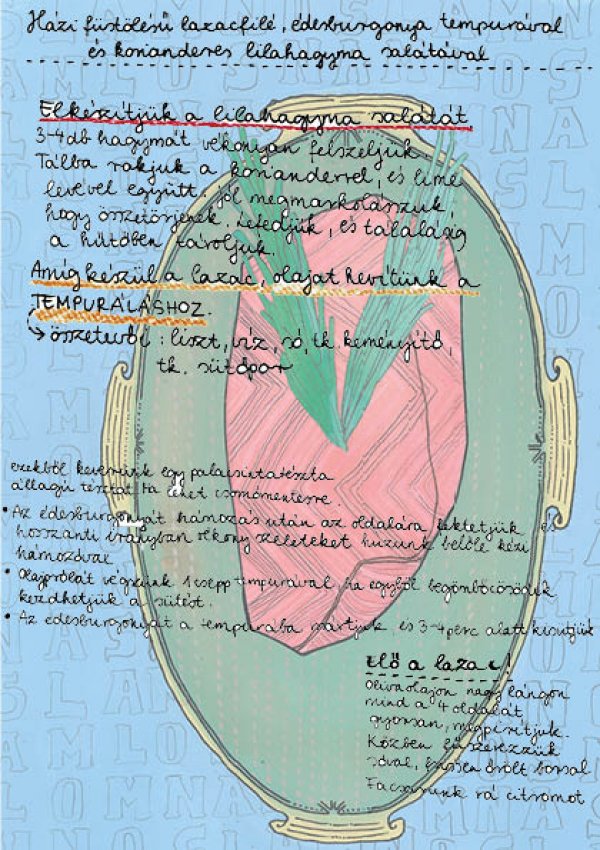 Házi füstölésű lazacfilé, édesburgonya tempurával
és korianderes lilahagyma salátával
Elkészítjük a lilahagyma salátát
3-4 db hagymát vékonyan felszeljük
Tálba rakjuk a korianderrel, és lime
levével együtt jól megmarkolásszuk,
hogy összetörjenek, lefedjük, és tálalásig
a hűtőben tároljuk.
Amíg készül a lazac, olajat hevítünk a
TEMPURÁLÁSHOZ.
összetevői: liszt, víz, só, tk. keményítő,
tk. sütőpor
ezekből keverünk egy palacsintatészta
állagú tésztát ha lehet csomómentesre.
• Az édesburgonyát hámozás után az oldalára fektetjük és
hosszanti irányban vékony szeleteket húzunk belőle kézi
hámozóval
• Olajpróbát végzünk 1 csepp tempurával, ha egyből begömböcösödik
kezdhetjük a sütést.
• Az édesburgonyát a tempurába mártjuk, és 3-4 perc alatt kisütjük
Elő a lazac!
Olívaolajon nagy lángon
mind a 4 oldalát
gyorsan, megpirítjuk.
Közben fűszerezzük
sóval, frissen őrölt borssal
Facsarunk rá citromot